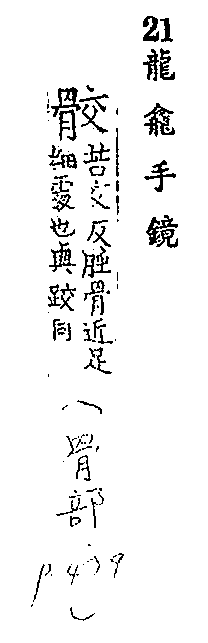 21
龍龕手鏡
骹 苦交反脛骨近足
細處也與跤同
(骨部
p.439)